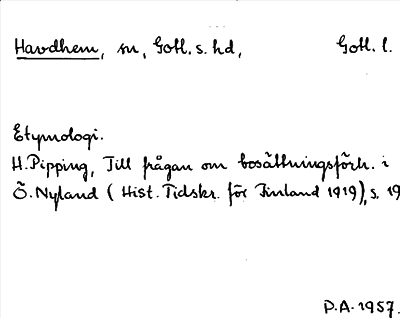 Havdhem, sn, Gotl. s. hd, Gotl. l.
Etymologi.
H. Pipping, Till frågan om bosättningsförh. i
Ö. Nyland (Hist. Tidskr. för Finland 1919), s. 19
P.A. 1957.